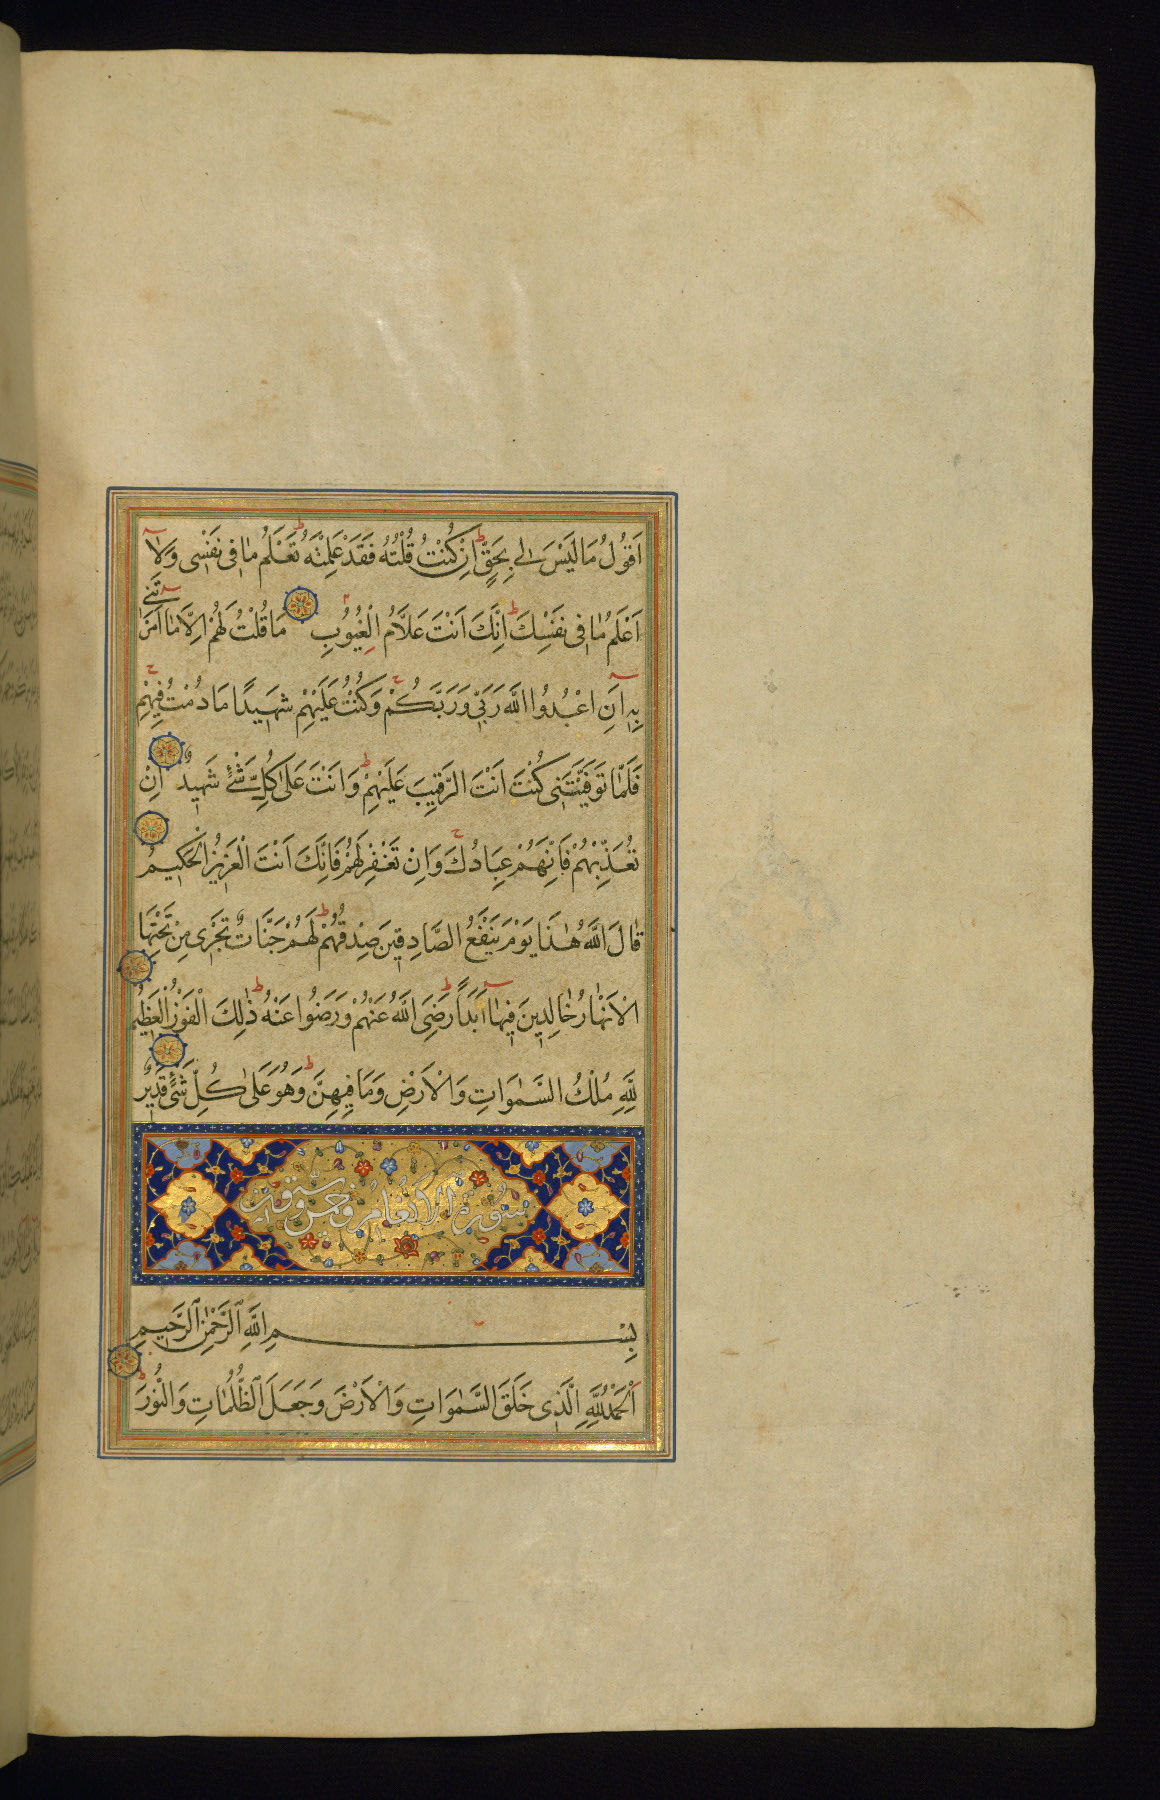 اَقُولُ مَا لَيْسَ لِي بِحَقٍّ اِنْ كُنْتُ قُلْتُهُ فَقَدْ عَلِمْتَهُ تَعْلَمُ مَا فِي نَفْسِي وَلَا
اَعْلَمُ مَا فِي نَفْسِكَ اِنَّكَ اَنْتَ عَلَّامُ الْغُيُوبِ مَا قُلْتُ لَهُمْ اِلَّا مَا اَمَرْتَنِي
بِهِ اَنِ اعْبُدُوا اللَّهَ رَبِّي وَرَبَّكُمْ وَكُنْتُ عَلَيْهِمْ شَهِيدًا مَا دُمْتُ فِيهِمْ
فَلَمَّا تَوَفَّيْتَنِي كُنْتَ اَنْتَ الرَّقِيبَ عَلَيْهِمْ وَاَنْتَ عَلَى كُلِّ شَيْءٍ شَهِيدٌ اِنْ
تُعَذِّبْهُمْ فَاِنَّهُمْ عِبَادُكَ وَاِنْ تَغْفِرْ لَهُمْ فَاِنَّكَ اَنْتَ الْعَزِيزُ الْحَكِيمُ
قَالَ اللَّهُ هٰذَا يَوْمُ يَنْفَعُ الصَّادِقِينَ صِدْقُهُمْ لَهُمْ جَنَّاتٌ تَجْرِي مِنْ تَحْتِهَا
الْاَنْهَارُ خَالِدِينَ فِيهَا اَبَدًا رَضِيَ اللَّهُ عَنْهُمْ وَرَضُوا عَنْهُ ذٰلِكَ الْفَوْزُ الْعَظِيمُ
لِلَّهِ مُلْكُ السَّمٰوَاتِ وَالْاَرْضِ وَمَا فِيهِنَّ وَهُوَ عَلَى كُلِّ شَيْءٍ قَدِيرٌ
سورة الانعام
بِسْمِ اللَّهِ الرَّحْمٰنِ الرَّحِيمِ
اَلْحَمْدُ لِلَّهِ الَّذِي خَلَقَ السَّمٰوَاتِ وَالْاَرْضَ وَجَعَلَ الظُّلُمَاتِ وَالنُّورَ